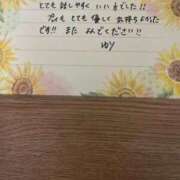 とても話しやすく いい きでした!!
プレイも とても 優しく 気持ちよかった
です!! また よんでください!!